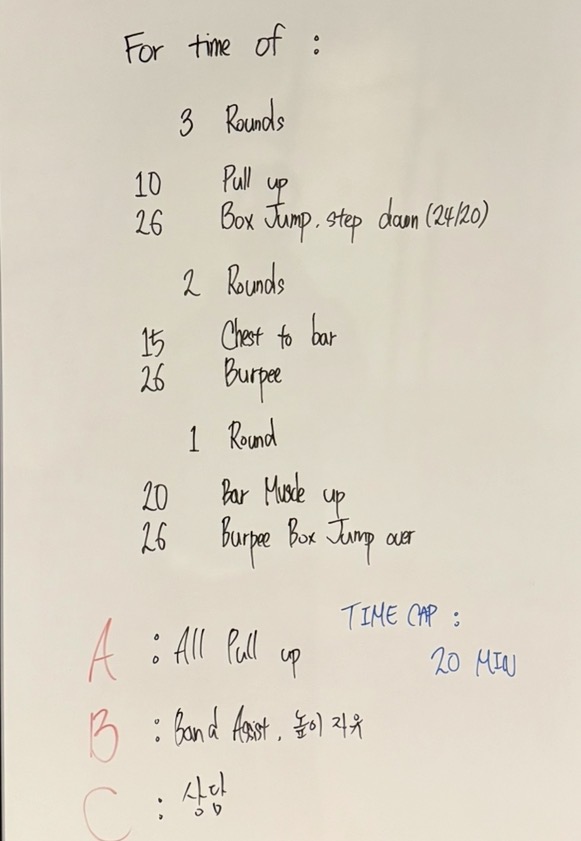 For time of :
3 Rounds
10 Pull up
26 Box Jump, step down (24/20)
2 Rounds
15 Chest to bar
26 Burpee
1 Round
20 Bar Muscle up
26 Burpee Box Jump over
TIME CAP :
20 MIN
A : All Pull up
B : Band Assist, 높이 자유
C : 상담